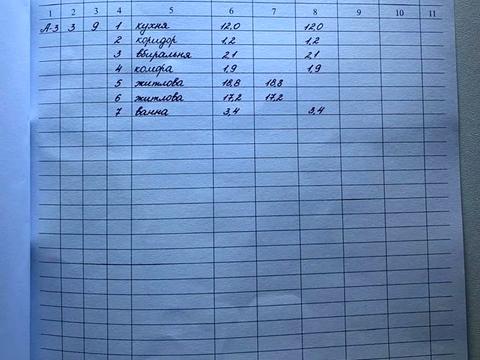 1 2 3 4 5 6 7 8 9 10 11
А-3 3 9 1 кухня 12,0 12,0
2 коридор 1,2 1,2
3 вбиральня 2,1 2,1
4 комфра 1,9 1,9
5 житлова 18,8 18,8
6 житлова 17,2 17,2
7 ванна 3,4 3,4